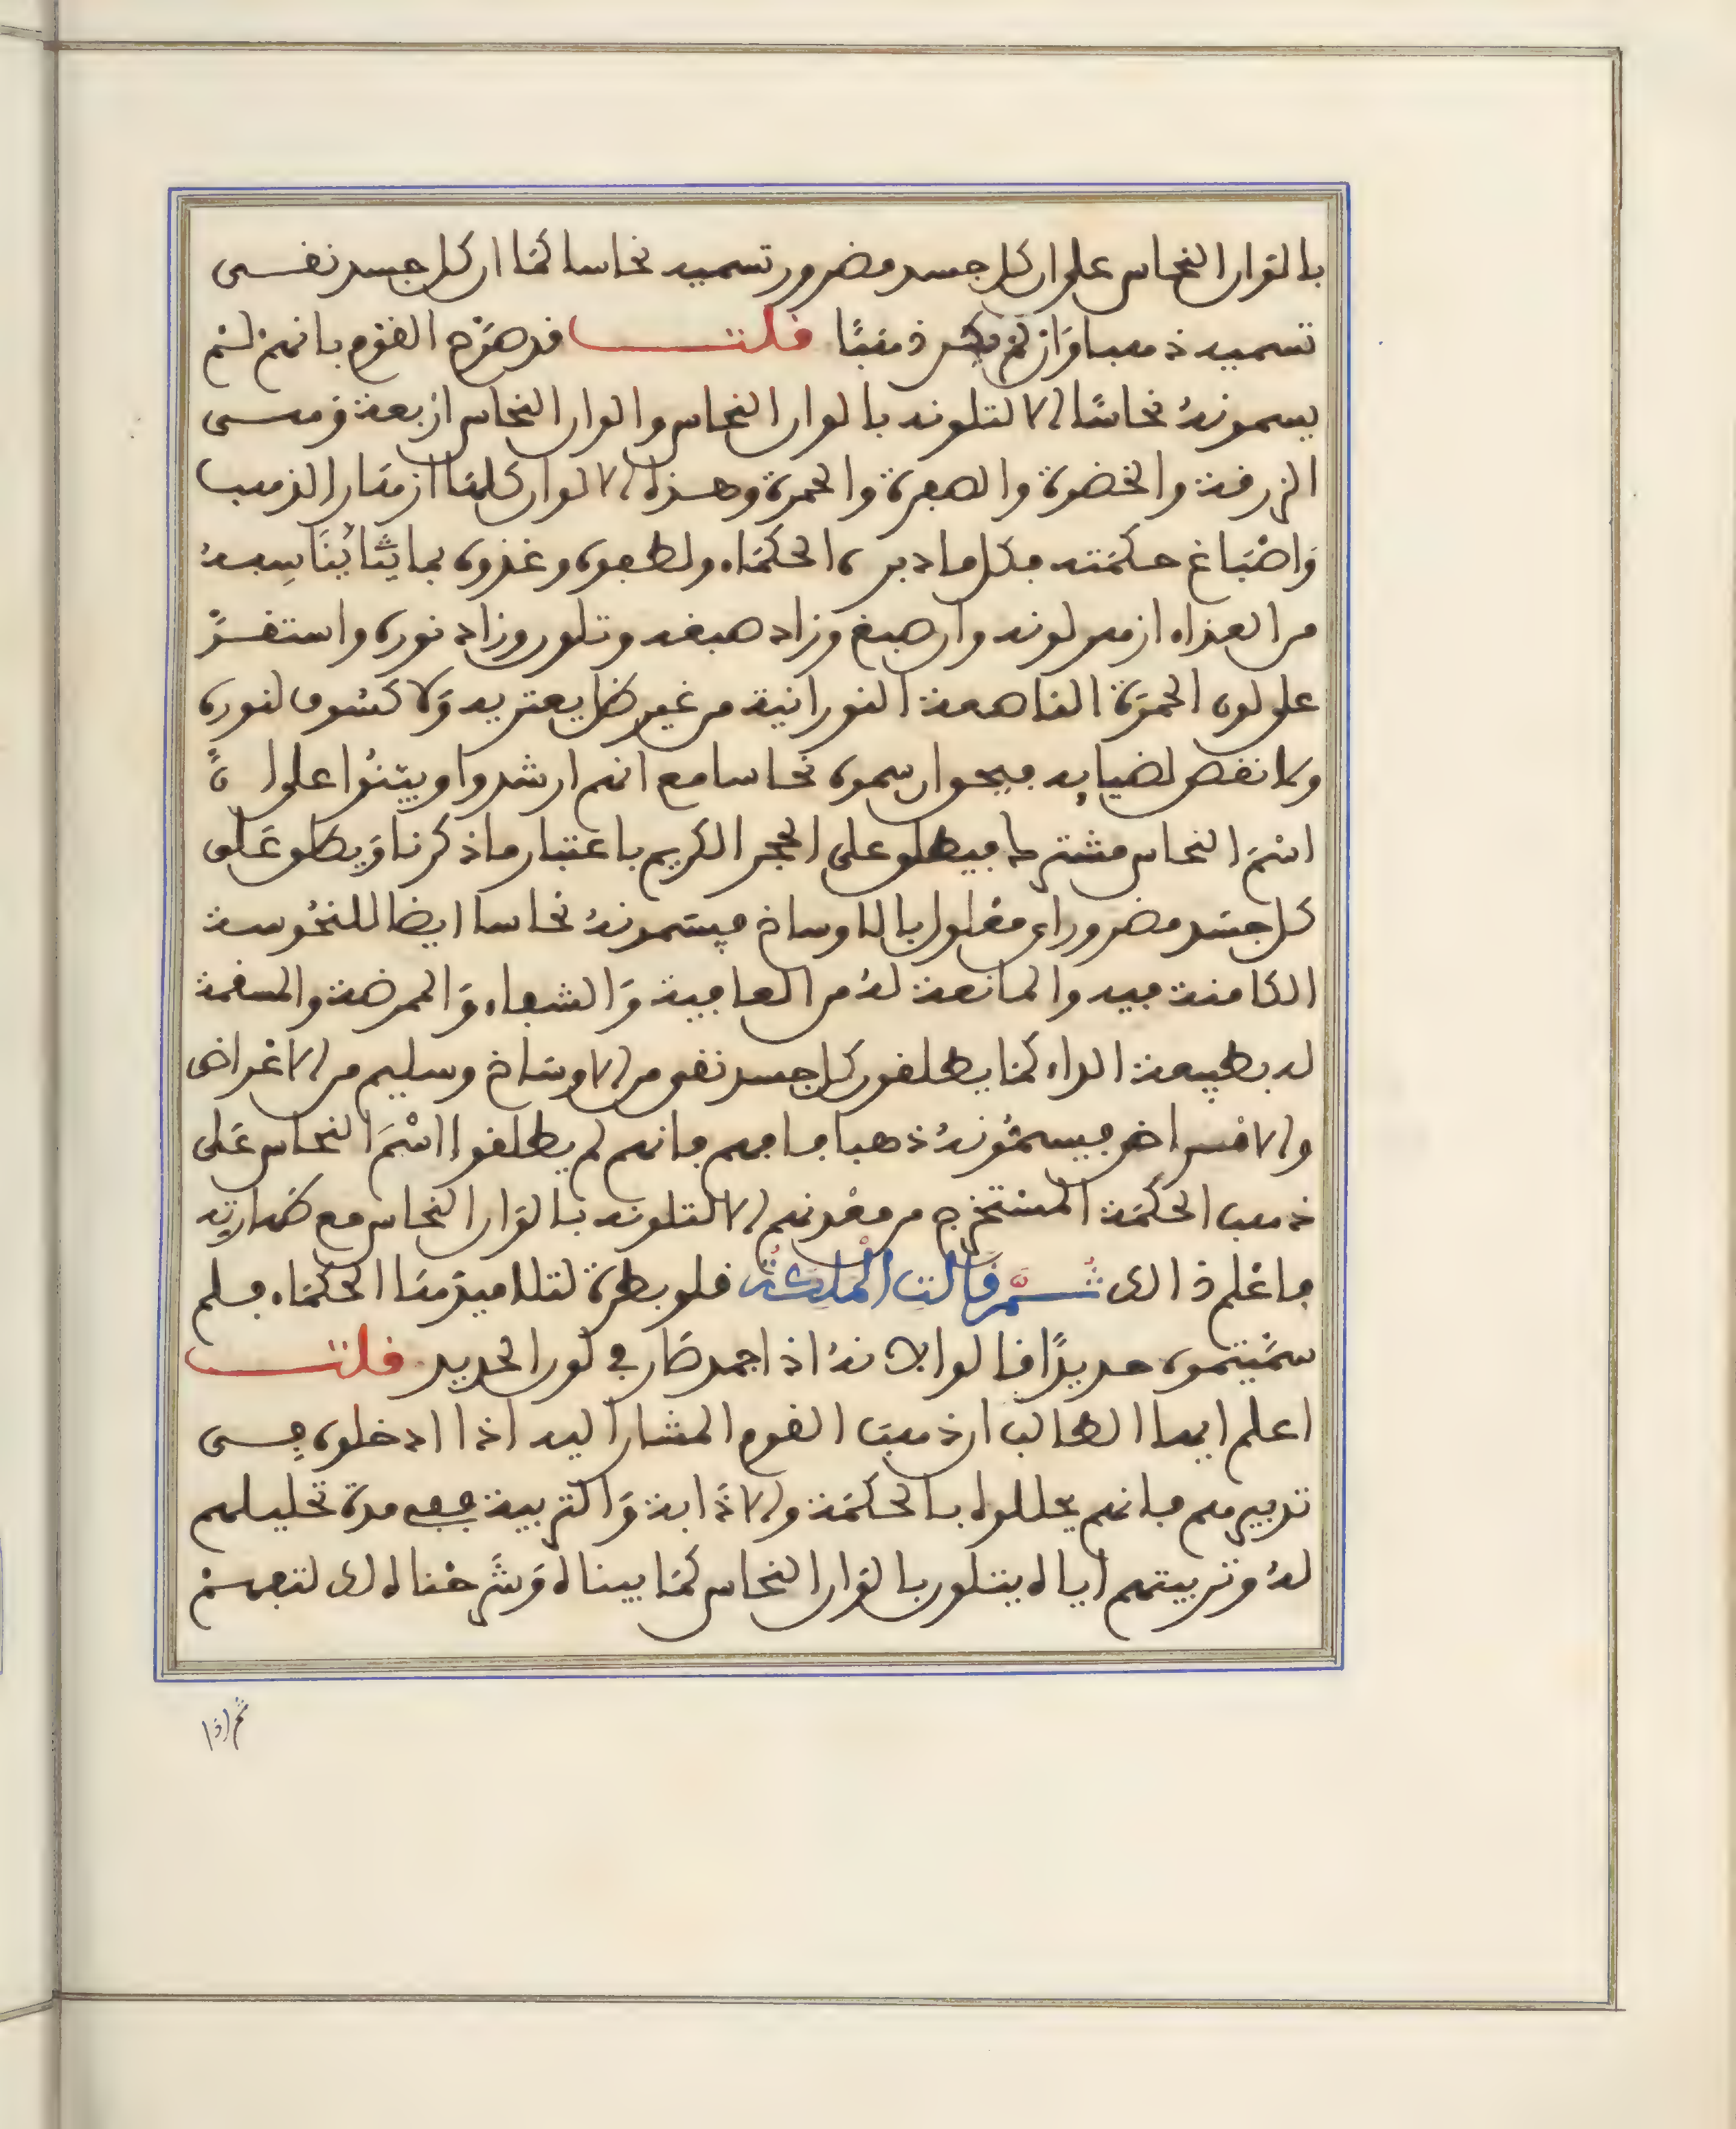 بالوان النحاس على ان كل جسد مضرور تسميه نحاسا كما ان كل جسد نقي
تسميه ذهبا وان لم يكن ذهبًا قلت قد صرّح القوم بانهم لم
يسمونهُ نحاسًا الا لتلونه بالوان النحاس والوان النحاس اربعة وهي
الزرقة والخضرة والصفرة والحمرة وهذه الالوان كلها ازهار الذهب
وَاصْبَاغ حكمته فكل ما دبره الحكماء ولطفوه وغذوه بما يُنَاسِبهُ
من الغذاء ازهر لونه وانصبغ وزاد صبغه وتلون وزاد نوره واستقرّ
على لون الحمرة الناصعة النورانية من غير ظل يعتريه وَلا كشوف لنوره
ولا نقص لضيايه فبحق ان سموه نحاسا مع انهم ارشدوا وبيّنُوا على انَّ
اسْمَ النحاس مشترك فيطلق على الحجر الكريم باعتبار ما ذكرنا وَيطلق عَلى
كل جسَد مضرور اي مغلول بالاوساخ فيسَمونهُ نحاسا ايضا للنحُوسة
الكامنة فيه والمانعة لهُ من العافية وَالشفاء وَالممرضة والمسقمة
له بطبيعة الداء كما يطلقون كل جسد نقي من الاوسَاخ وسليم من الاعْراض
والامْراض فيسمُّونهُ ذهبا فافهم فانهم لم يطلقوا اسْمَ النحاس عَلى
ذهب الحكمَة المستخرج من معْدنهم الا لتلونه بالوَان النحاس مع طهارته
فاعْلم ذالك ثُـمَّ قَالت الملِكَةُ فلوبطرة لتلاميذهَا الحكمَاء فلم
سمَّيتموه حديدًا قالوا لانهُ اذا جمد صَار في لون الحديد قلت
اعلم ايها الطالب ان ذهب القوم المشار اليه اذا ادخلوه في
تدبيرهم فانهم يحللوه بالحكمَة والاذَابة وَالتربية ففي مدة تحليلهم
لهُ وتربيتهم اياه يتلون بالوَان النحاس كمَا بيناه وَشَرحْناه لك لتفهمْ
ثم اذا